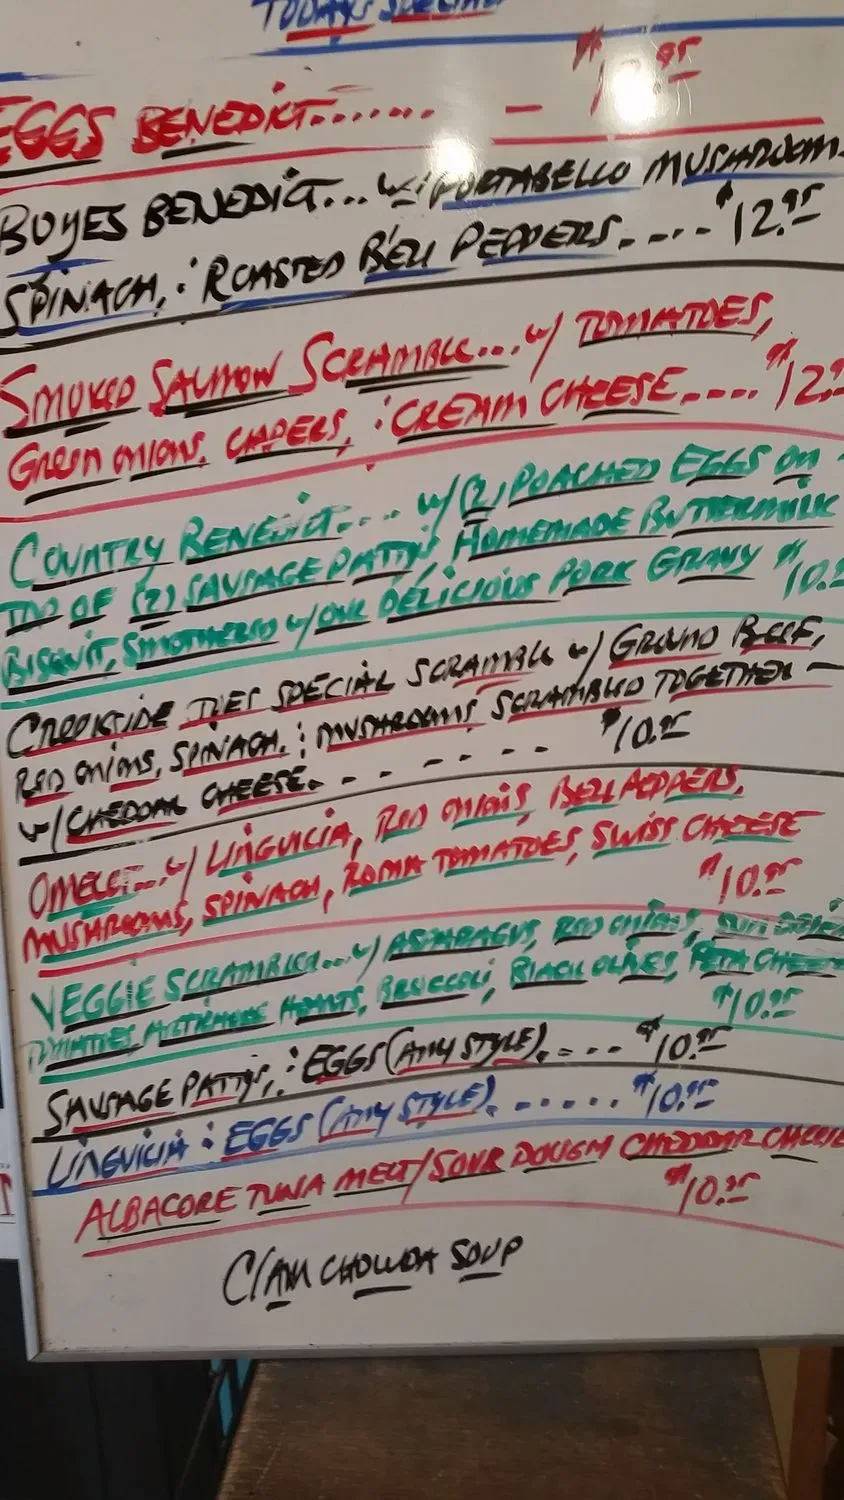 TODAYS SPECIALS
EGGS BENEDICT....... –
BUYES BENEDICT... w/ PORTABELLO MUSHROOMS
SPINACH, & ROASTED BELL PEPPERS..... $12.95
SMOKED SALMON SCRAMBLE... w/ TOMATOES,
GREEN ONIONS, CAPERS, & CREAM CHEESE..... $12.
COUNTRY BENEDICT.... w/ (2) POACHED EGGS ON
TOP OF (2) SAUSAGE PATTYS HOMEMADE BUTTERMILK
BISQUIT, SMOTHERED w/ OUR DELICIOUS PORK GRAVY $10.
CREEKSIDE SPECIAL SCRAMBLE w/ GROUND BEEF,
RED ONIONS, SPINACH, & MUSHROOMS SCRAMBLED TOGETHER –
w/ CHEDDAR CHEESE. . . . . . . $10.95
OMELET... w/ LINGUICIA, RED ONIONS, BELL PEPPERS,
MUSHROOMS, SPINACH, ROMA TOMATOES, SWISS CHEESE
$10.95
VEGGIE SCRAMBLE... w/ ASPARAGUS, RED ONIONS, SUN DRIED
TOMATOES, ARTICHOKE HEARTS, BROCCOLI, BLACK OLIVES, FETA CHEESE
$10.95
SAUSAGE PATTYS, & EGGS (ANY STYLE).... $10.95
LINGUICIA & EGGS (ANY STYLE)...... $10.95
ALBACORE TUNA MELT/SOUR DOUGH CHEDDAR CHEESE
$10.95
CLAM CHOWDA SOUP